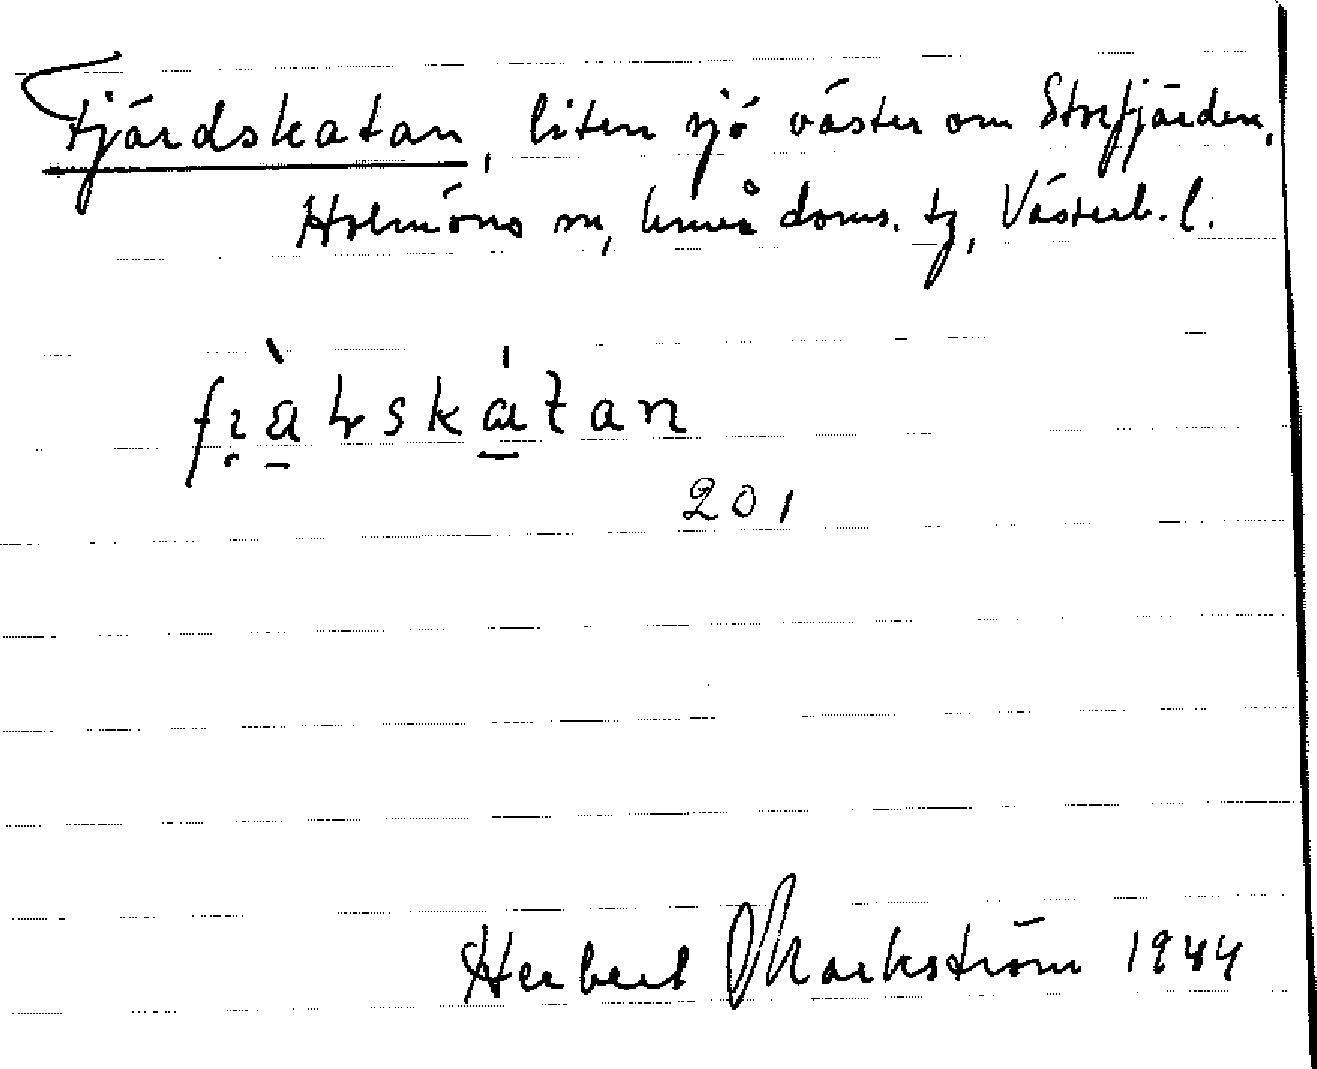 Fjärdskatan, liten sjö väster om Storfjärden,
Holmöns sn, Umeå doms. tg, Västerb. l.
201
Herbert Markström 1944